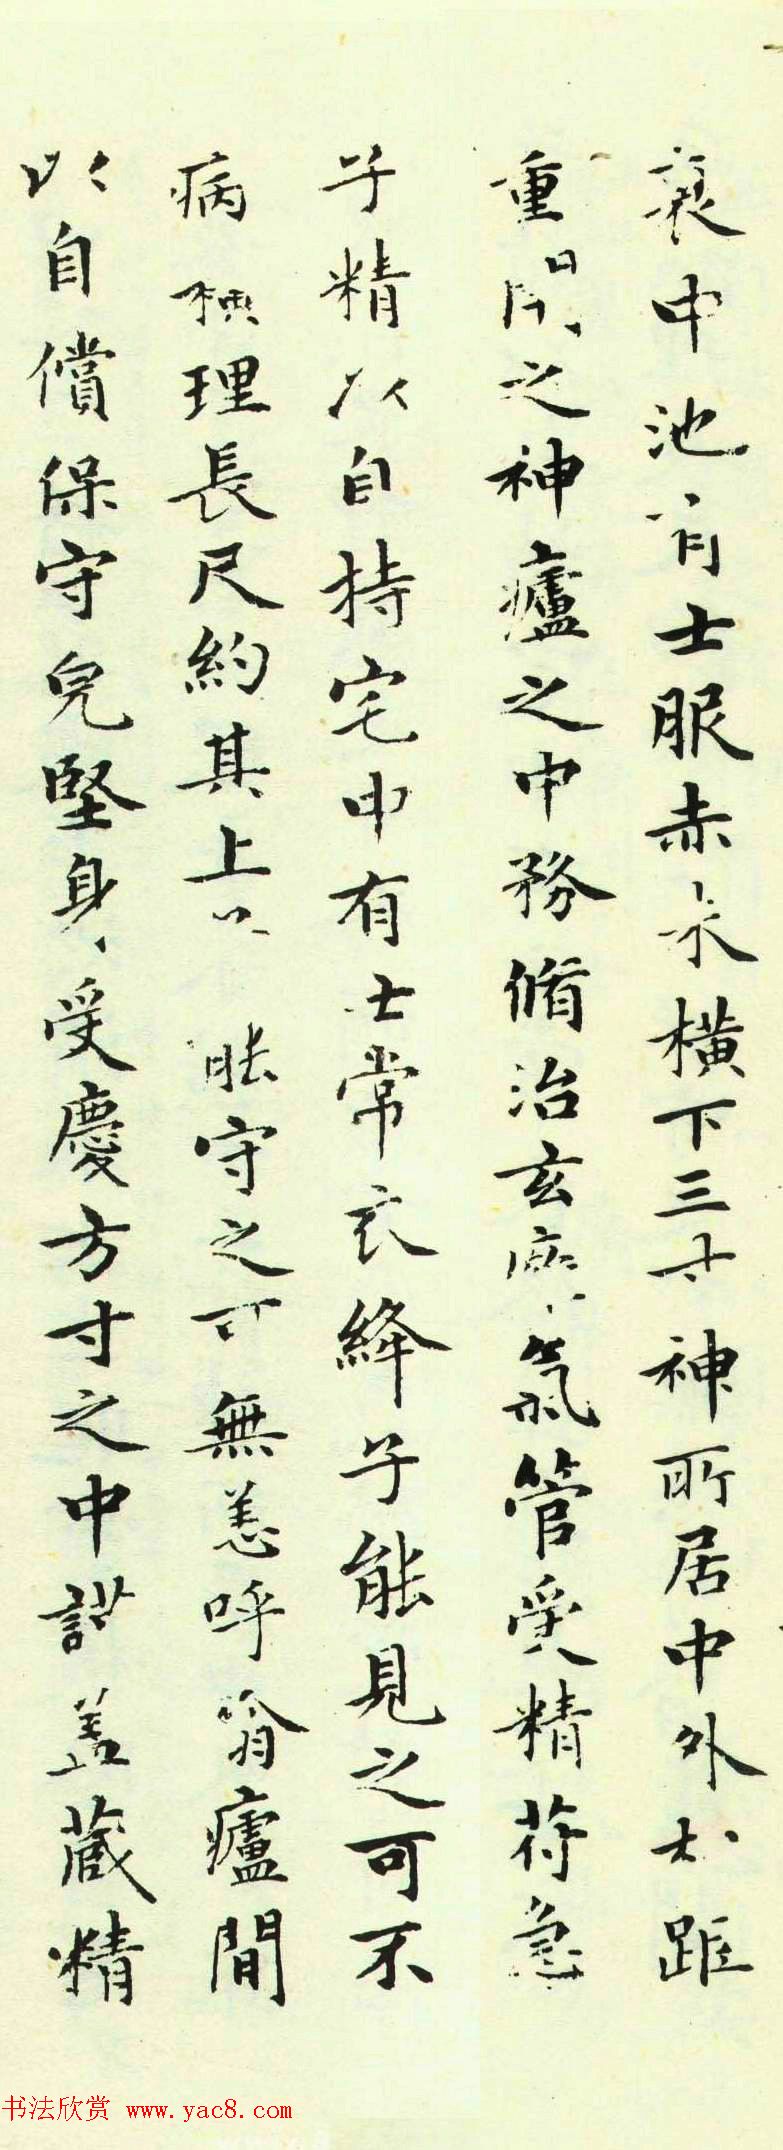 衰中池有士服赤衣橫下三寸神所居中外相距
重閉之神廬之中務脩治玄廱氣管受精符急
子精以自持宅中有士常衣絳子能見之可不
病橫理長尺約其上 能守之可無恙呼噏廬間
以自償保守皃堅身受慶方寸之中謹盖蔵精
书法欣赏 www.yac8.com